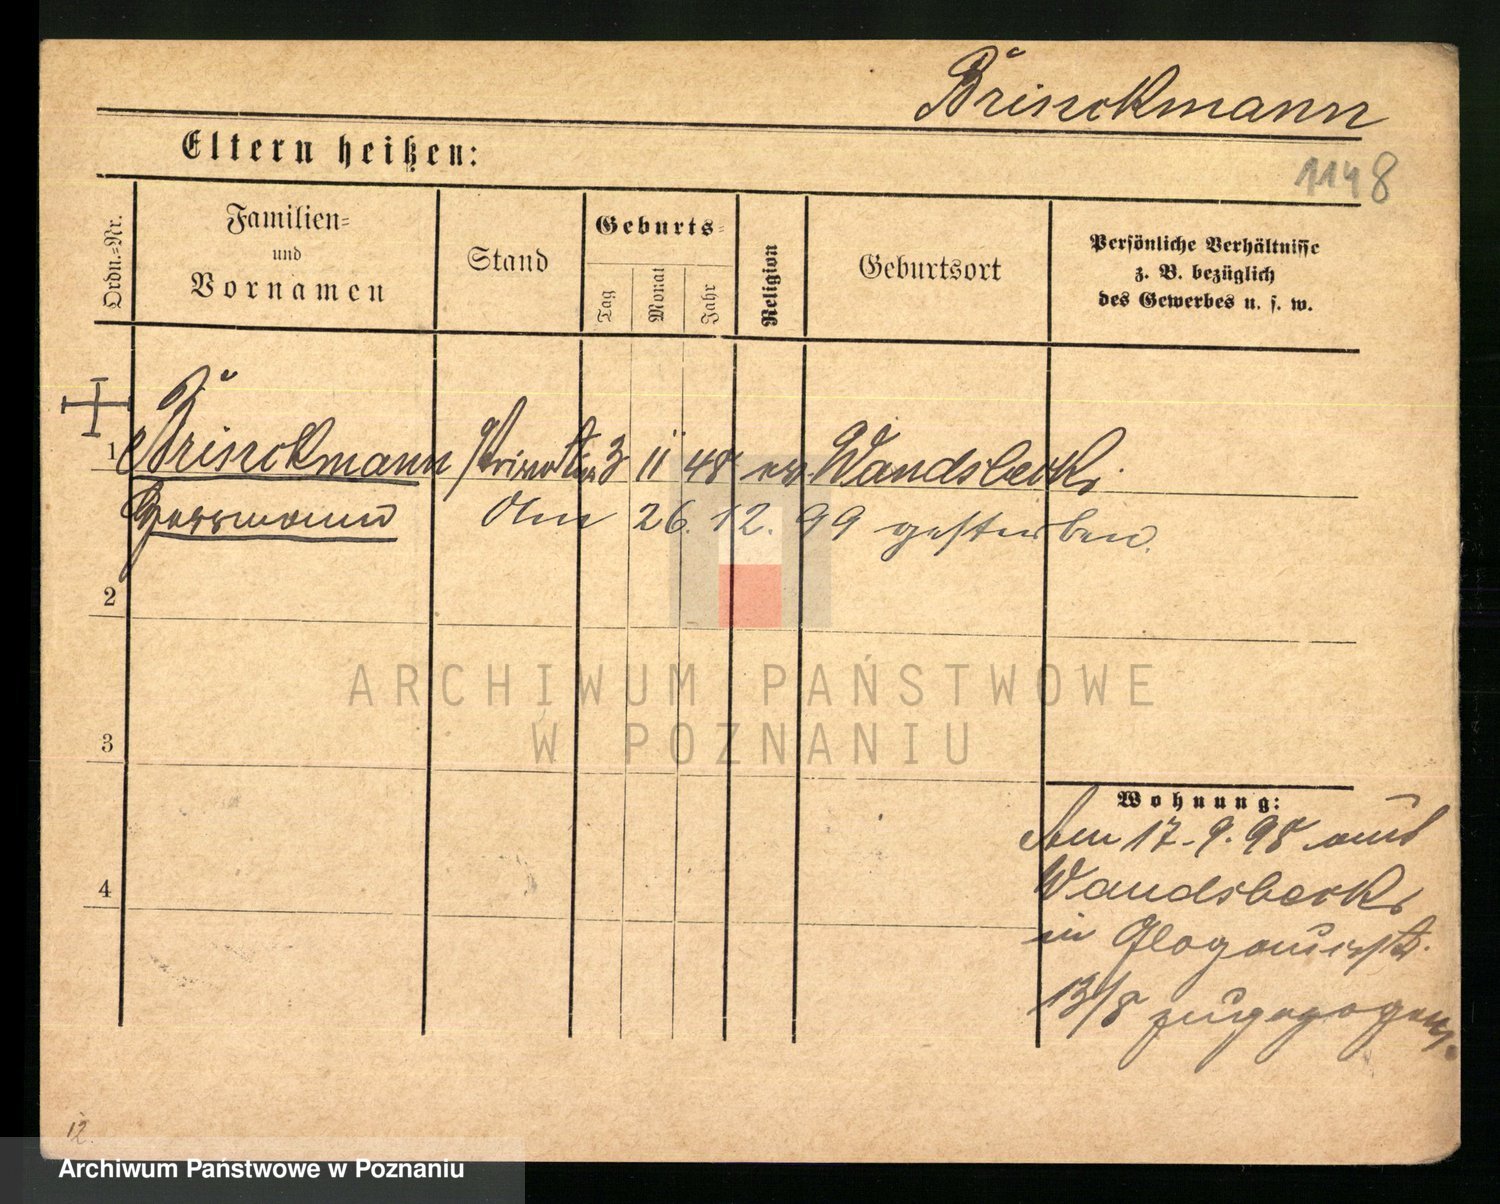 Brinckmann
Eltern heißen:
1148
Ordn.-Nr.
Familien-
und
Vornamen
Stand
Geburts-
Tag
Monat
Jahr
Religion
Geburtsort
Persönliche Verhältnisse
z. B. bezüglich
des Gewerbes u. s. w.
1 Brinckmann 3 11 48 ev. Wandsbeck
Herrmann Am 26. 12. 99 gestorben.
2
3
4
ARCHIWUM PAŃSTWOWE
W POZNANIU
Wohnung:
Am 17. 9. 98 aus
Wandsbeck
in Glogauerstr.
13/8 zugezogen.
12.
Archiwum Państwowe w Poznaniu